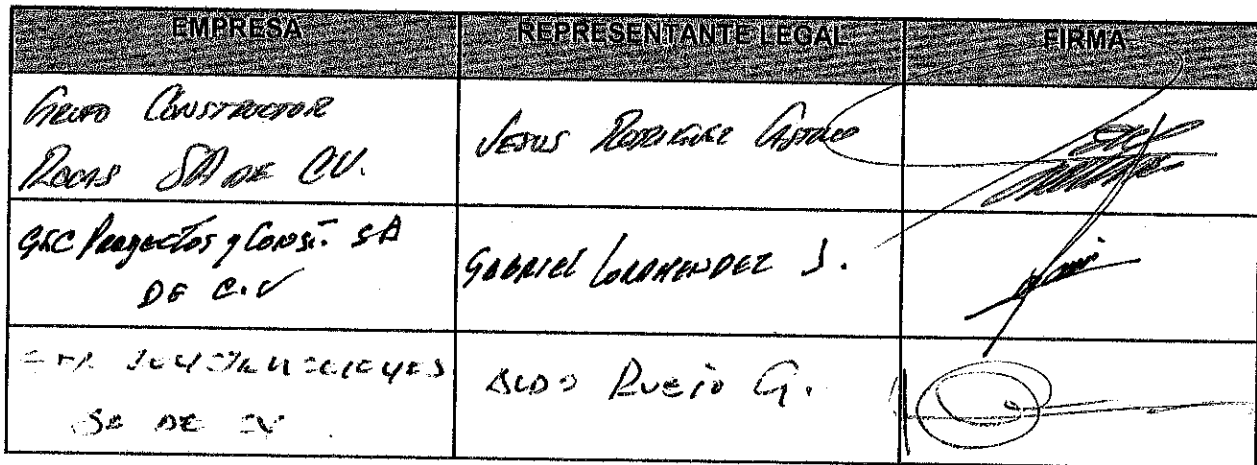 EMPRESA REPRESENTANTE LEGAL FIRMA
GRUPO CONSTRUCTOR
ROCAS SA DE CV. JESUS RODRIGUEZ CASTRO
G&C Proyectos y Const. SA
DE C.V GABRIEL J.
CONSTRUCCIONES
SA DE CV ALDO RUBIO G.